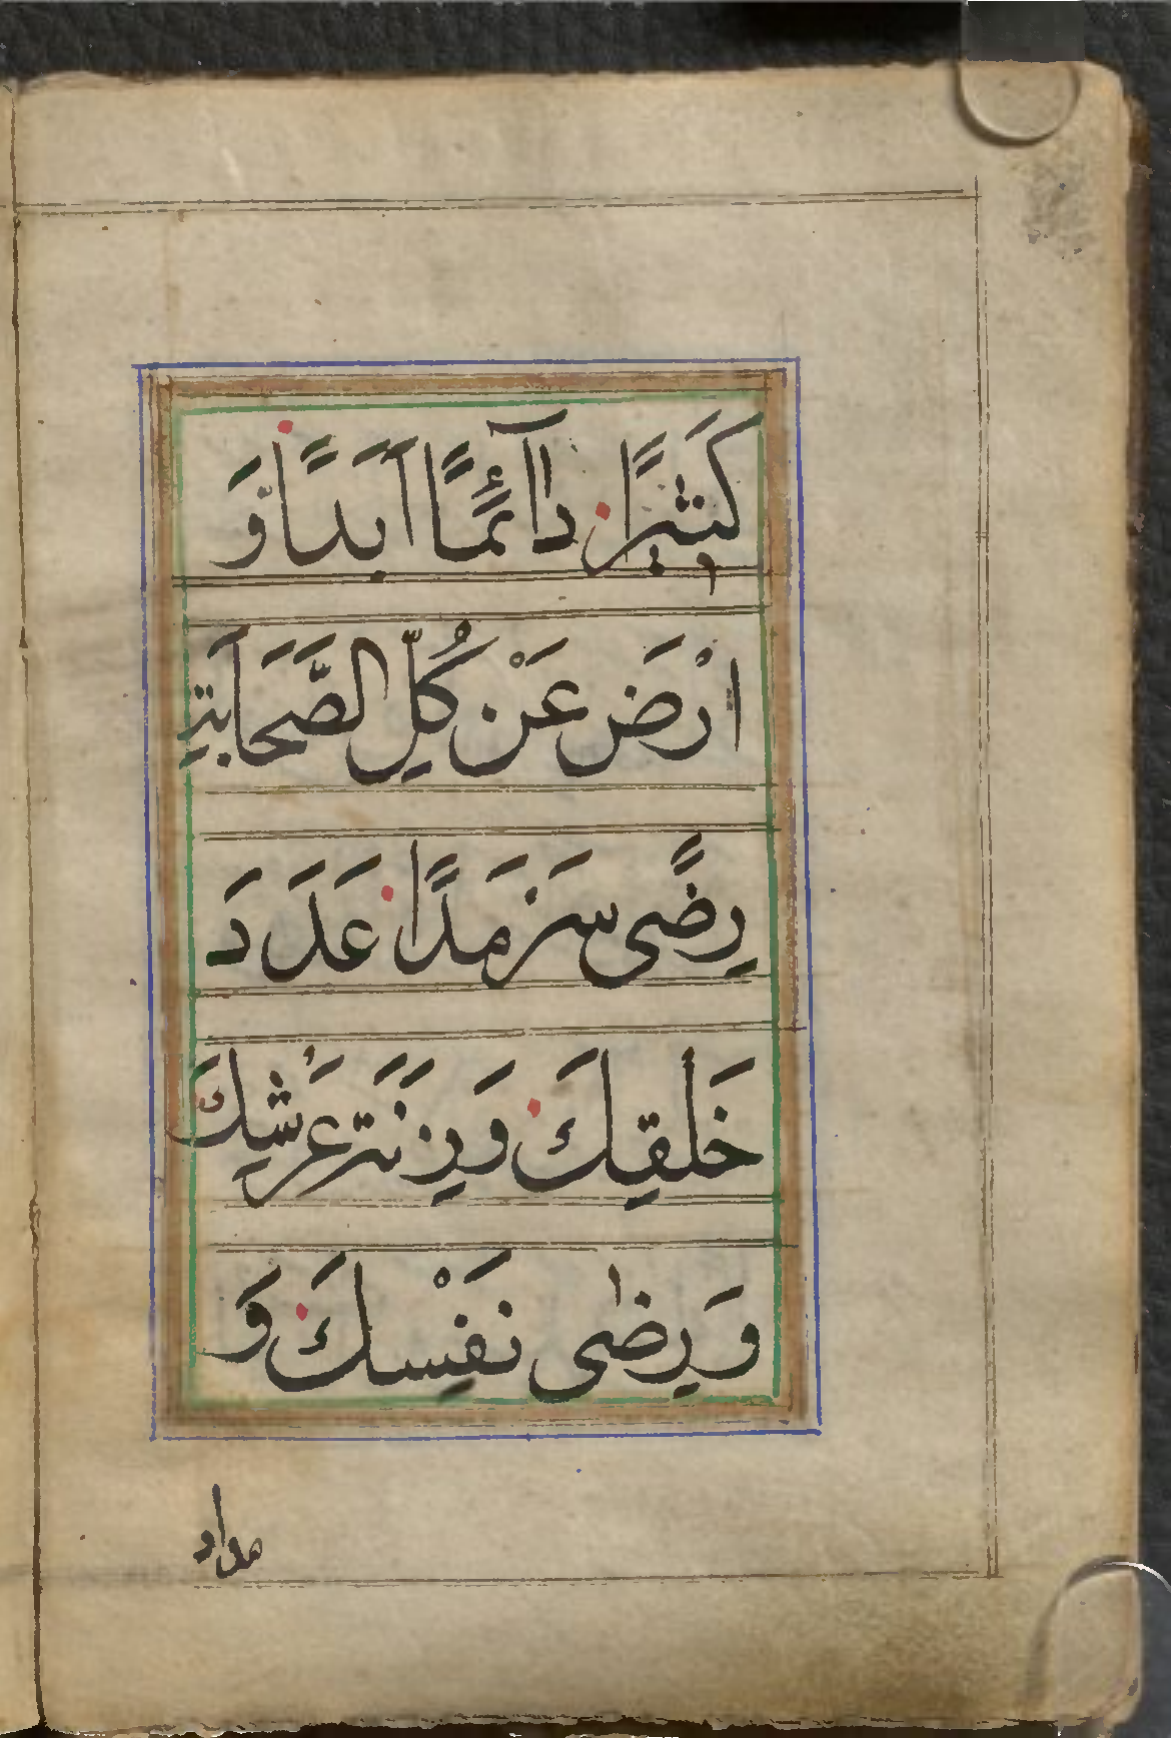 كَثِيرًا دَآئِمًا اَبَدًا وَّ
ارْضَ عَنْ كُلِّ الصَّحَابَةِ
رِضًى سَرْمَدًا عَدَدَ
خَلْقِكَ وَزِنَةَ عَرْشِكَ
وَرِضٰى نَفْسِكَ وَ
مداد